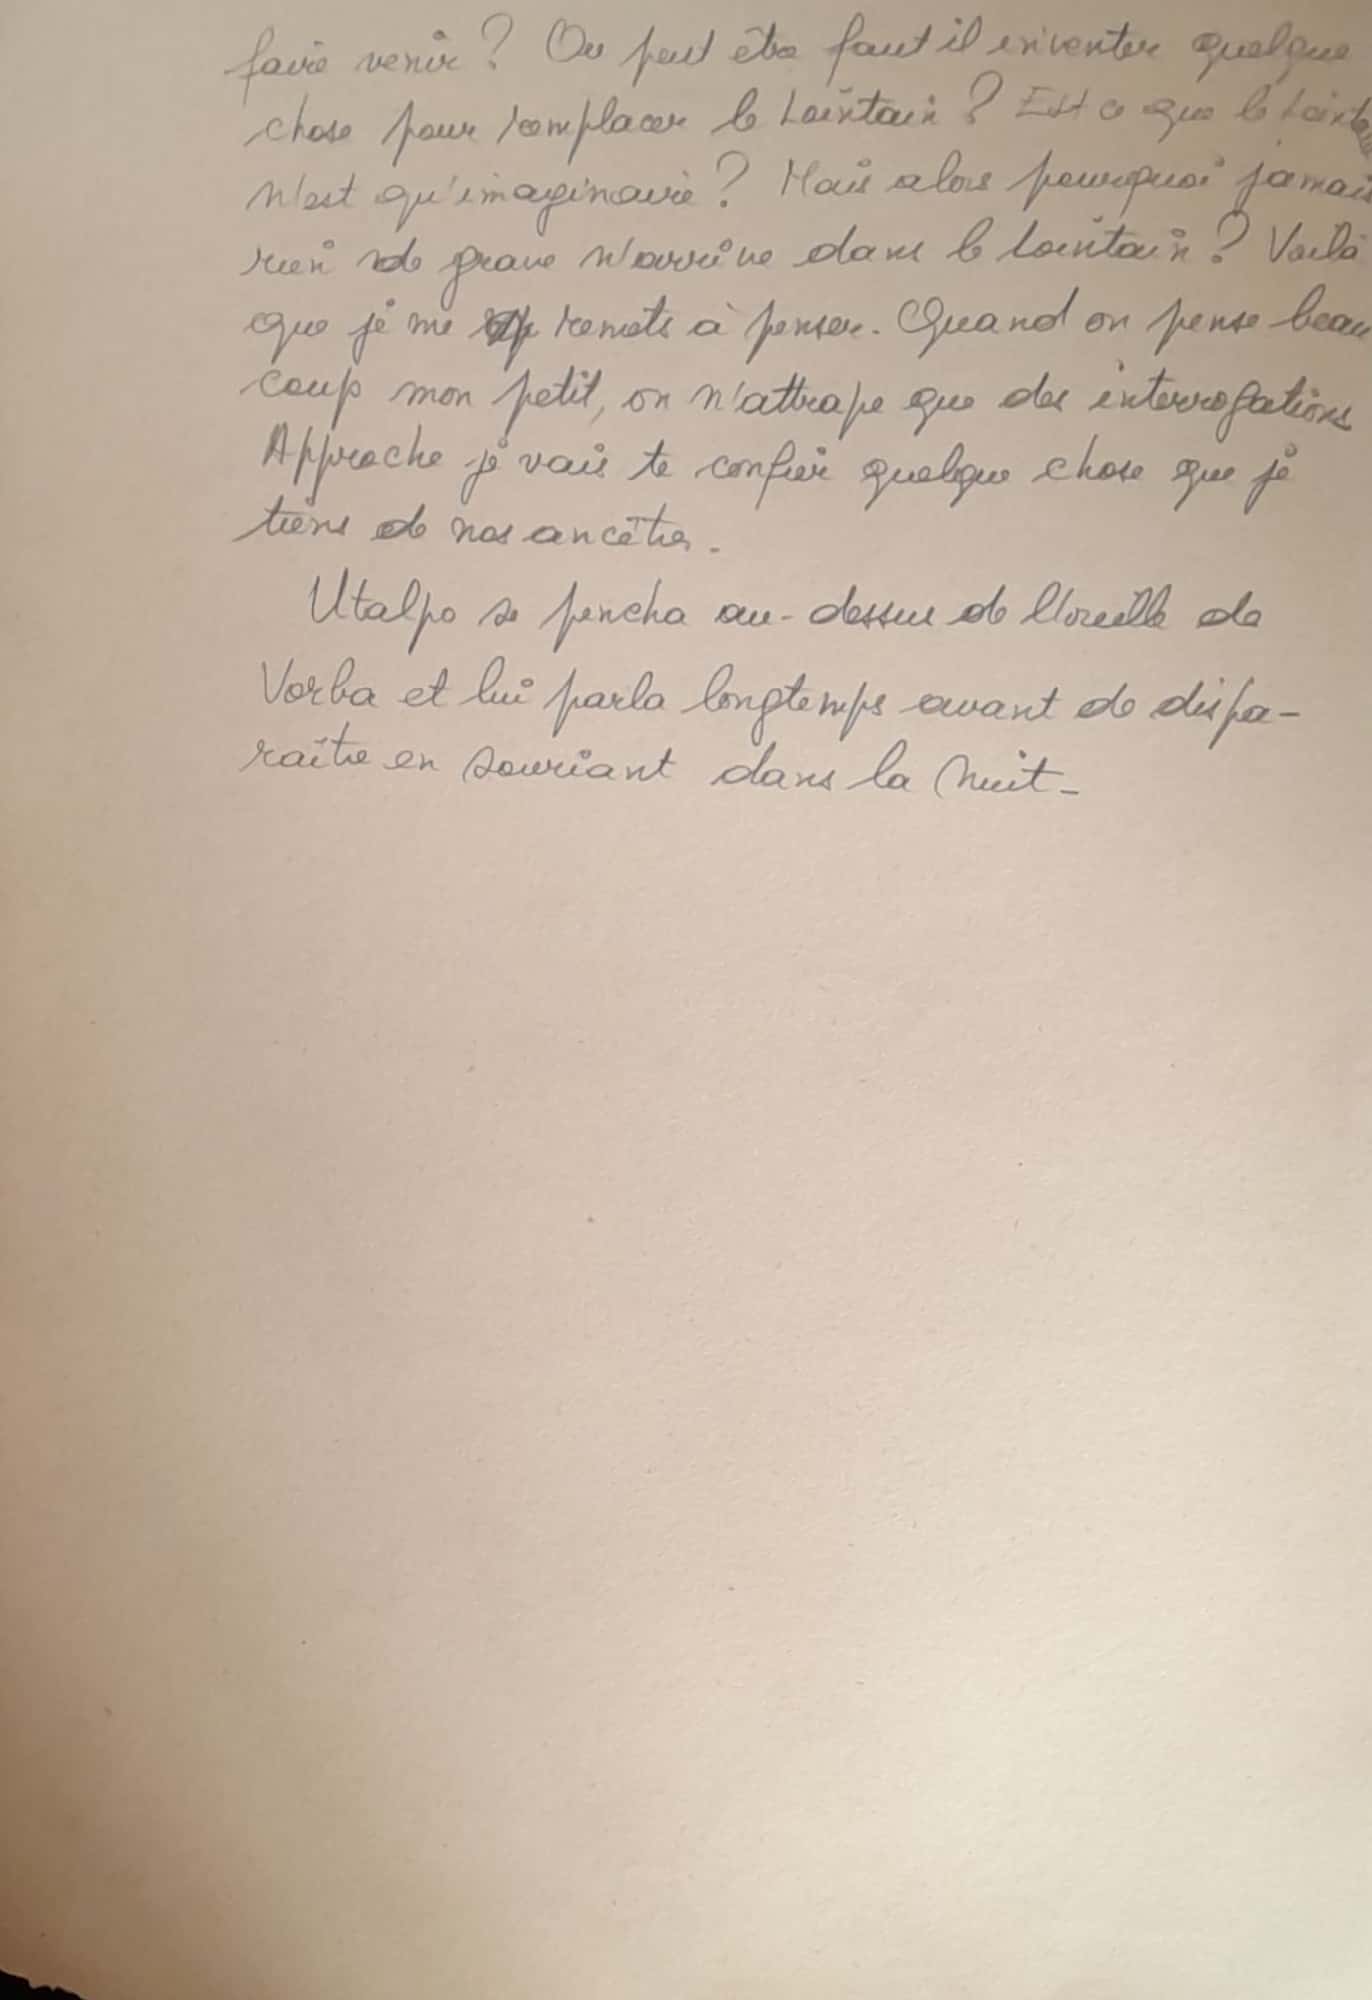 faire venir ? Ou peut être faut il inventer quelque
chose pour remplacer le Lointain ? Est ce que le Lointain
n'est qu'imaginaire ? Mais alors pourquoi jamais
rien de grave n'arrive dans le Lointain ? Voilà
que je me remets à penser. Quand on pense beau
coup mon petit, on n'attrape que des interrogations
Approche je vais te confier quelque chose que je
tiens de nos ancêtres.
Utalpo se pencha au-dessus de l'oreille de
Vorba et lui parla longtemps avant de dispa-
raître en souriant dans la nuit-